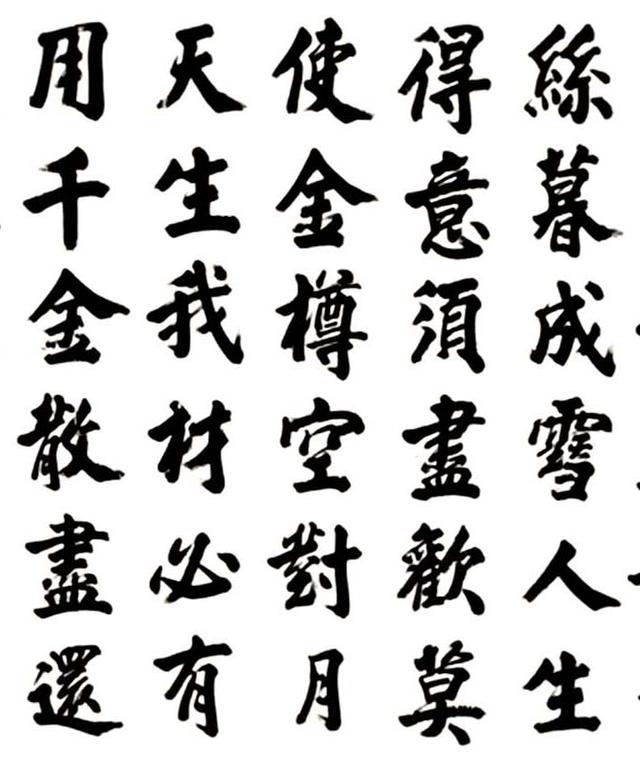 絲暮成雪人生
得意須盡歡莫
使金樽空對月
天生我材必有
用千金散盡還